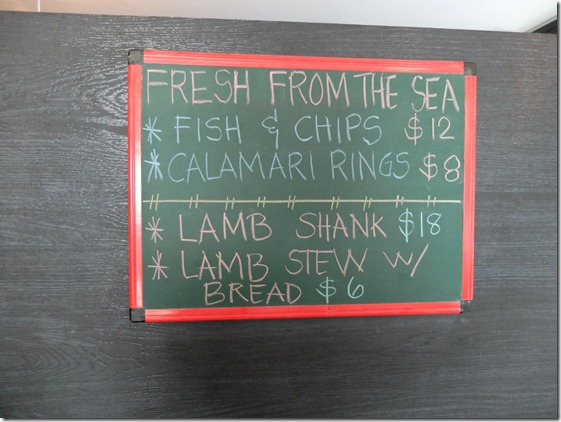 FRESH FROM THE SEA
* FISH & CHIPS $12
* CALAMARI RINGS $8
* LAMB SHANK $18
* LAMB STEW W/
BREAD $6